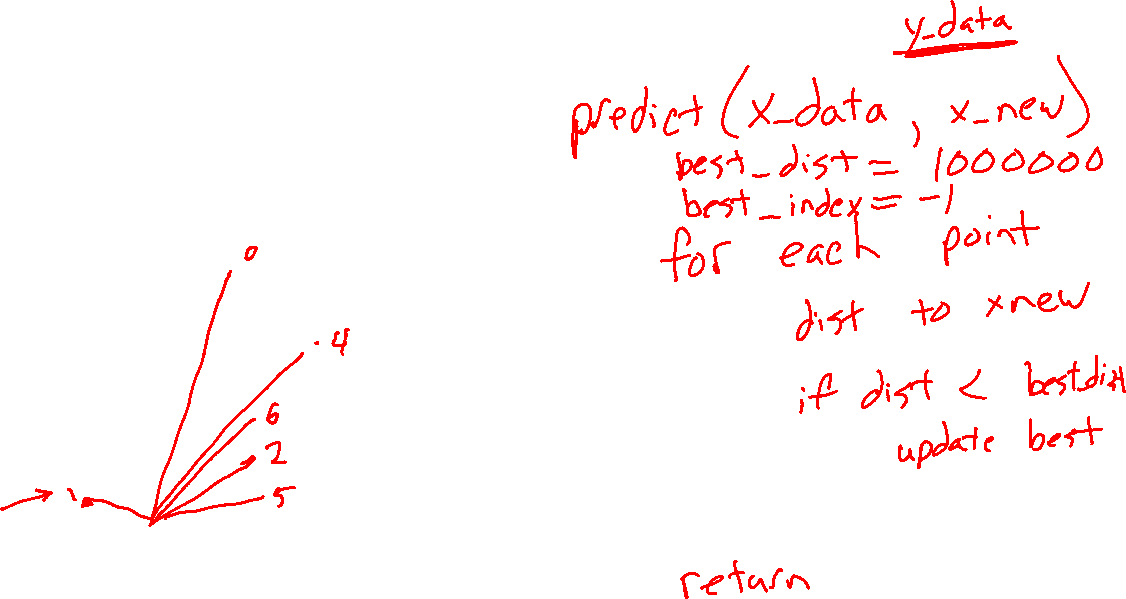 y_data
predict(x_data, x_new)
best_dist = 1000000
best_index = -1
for each point
dist to xnew
if dist < best_dist
update best
return
0
4
6
2
5
1